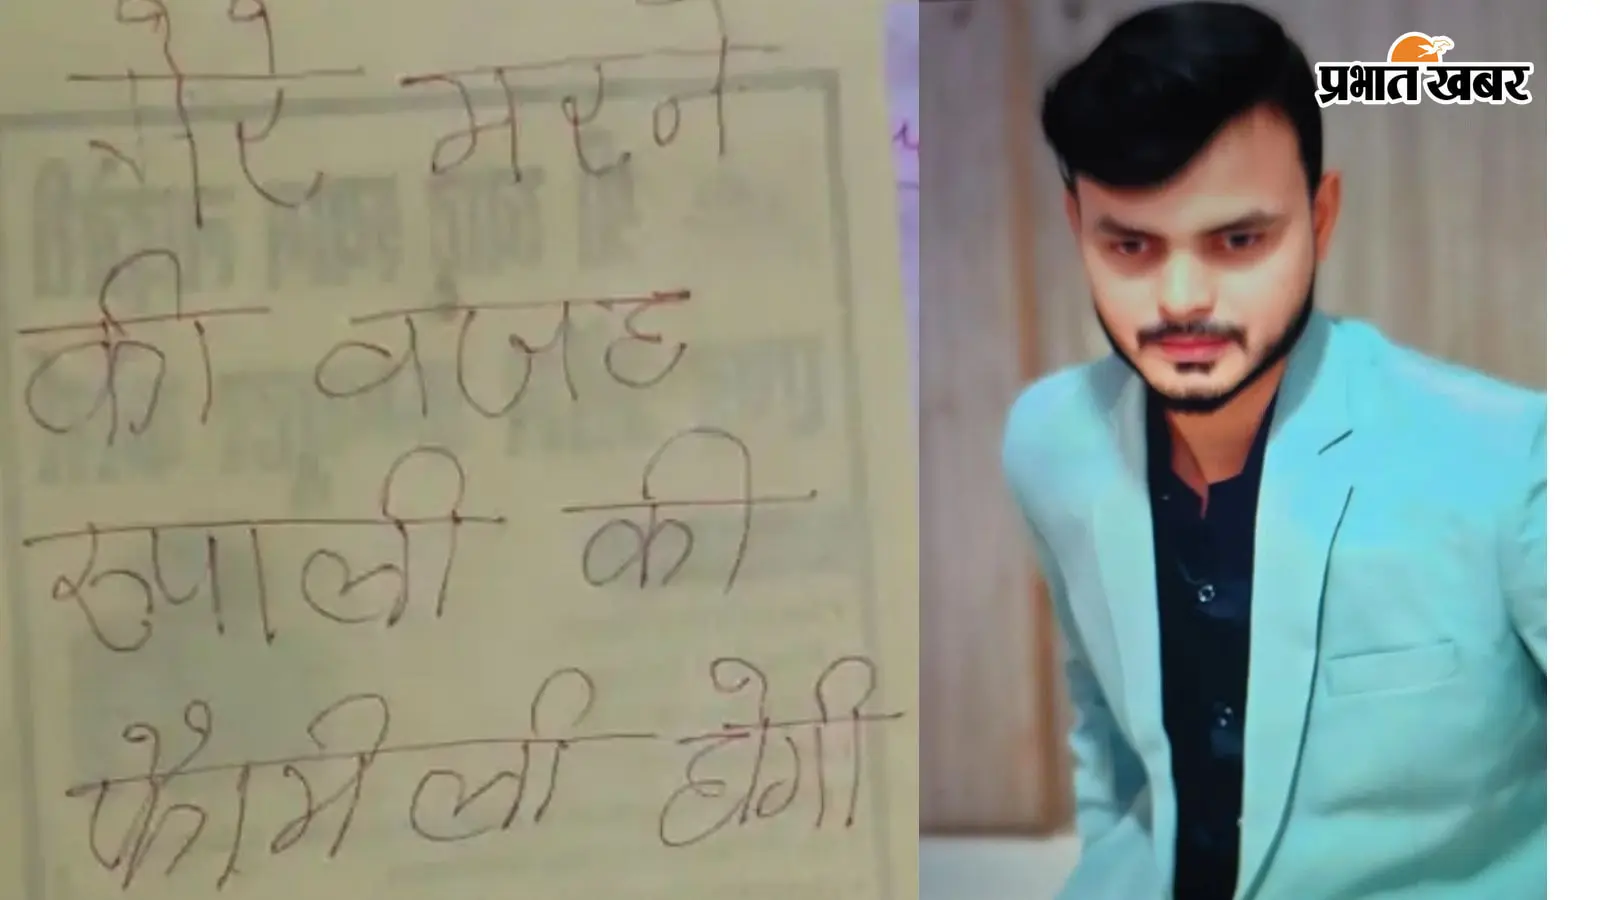 मेरे मरने
की वजह
रुपाली की
फैमिली होगी
प्रभात खबर